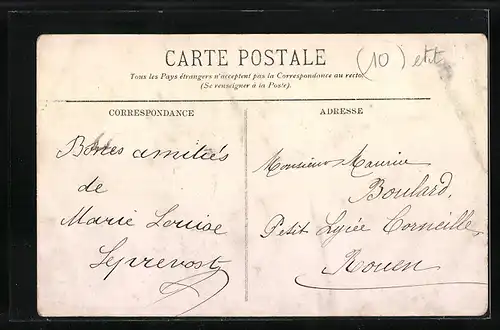 CARTE POSTALE
Tous les Pays étrangers n'acceptent pas la Correspondance au recto
(Se renseigner à la Poste).
(10) etit
CORRESPONDANCE
Bonnes amitiés
de
Marie Louise
Leprevost
ADRESSE
Monsieur Maurice
Boulard,
Petit Lycée Corneille,
Rouen